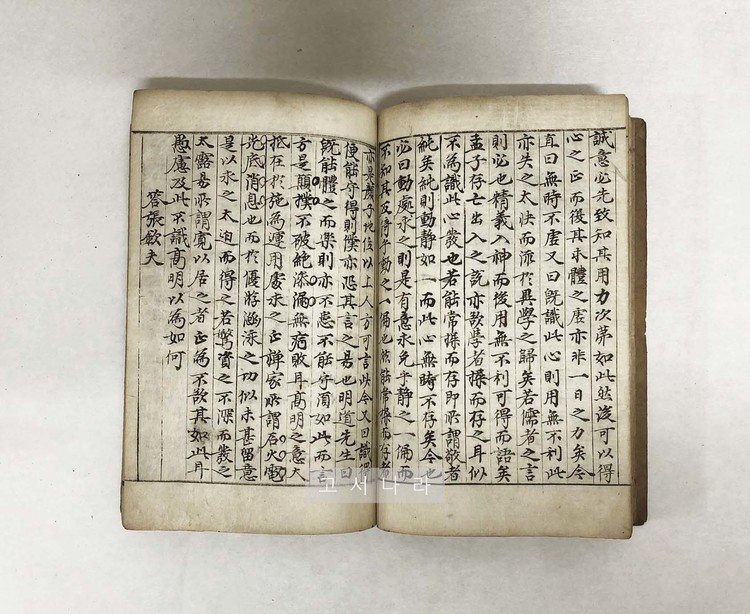 誠意必先致知其用力次第如此然後可以得
心之正而後其本體之虛亦非一日之力矣今
直曰無時不虛又曰旣識此心則用無不利此
亦失之太快而流於異學之歸矣若儒者之言
則必也精義入神而後用無不利可得而語矣
孟子存亡出入之說亦欲學者操而存之耳似
不為識此心發也若能常操而存即所謂敬者
純矣純則動靜如一而此心無時不存矣今也
必曰動處求之則是有意求免乎靜之一偏而
不知其反倚乎動之一偏也然能常操而存者
亦是顏子地位以上人方可言以今又曰識得
便能守得則僕亦恐其言之易也明道先生曰
旣能體之而樂則亦不患不能守須如此而言
方是顚撲不破絶滲漏無病敗耳高明之意大
抵在於施為運用處求之正禪家所謂石火電
光底消息也而於優游涵泳之功似未甚留意
是以求之太迫而得之若驚資之不深而發之
太露易所謂寬以居之者正為不欲其如此耳
愚慮及此不識高明以為如何
答張欽夫
고서나라